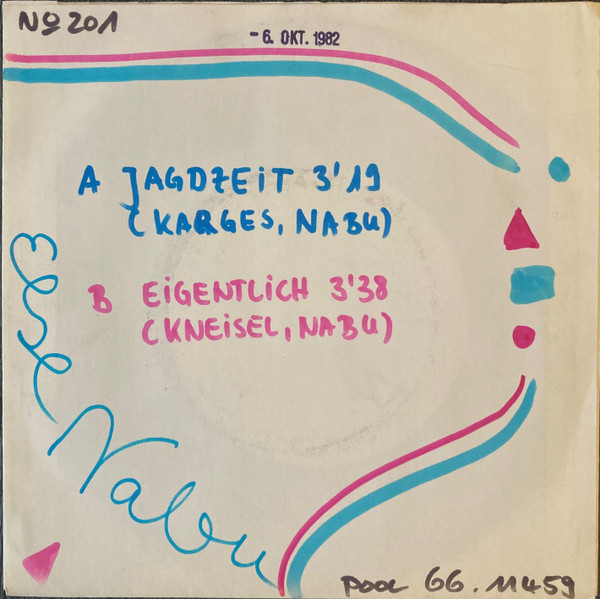 No 201
- 6. OKT. 1982
A JAGDZEIT 3'19
(KARGES, NABU)
B EIGENTLICH 3'38
(KNEISEL, NABU)
Else Nabu
POOL 66.11459